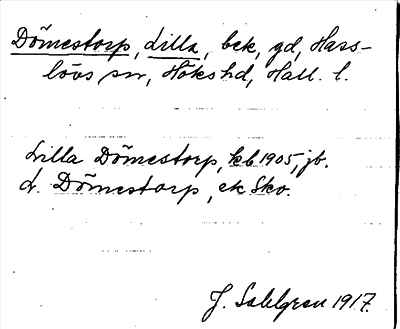 Dömestorp, Lilla, bek, gd, Hars-
lövs sn, Höks hd, Hall. l.
Lilla Dömestorp, kb 1905, jb.
L. Dömestorp, ek Sko.
J. Sahlgren 1917.